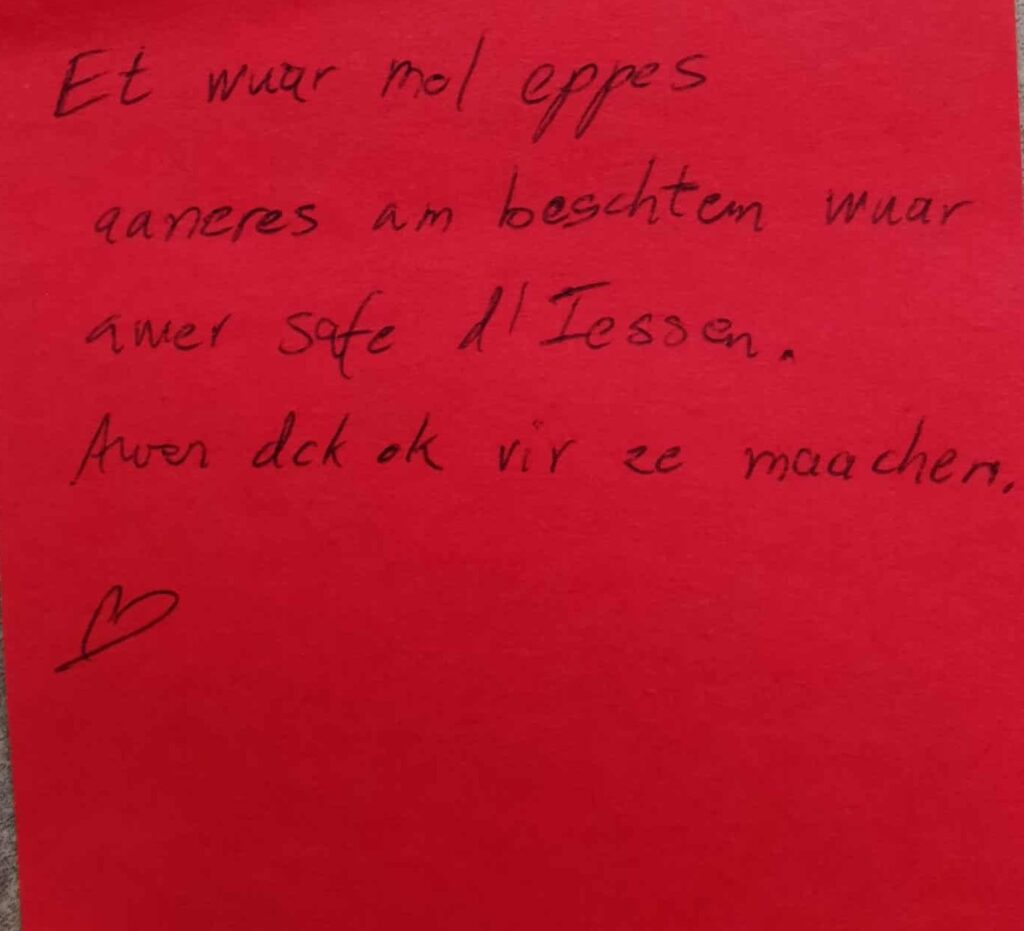 Et wuar mol eppes
aaneres am beschtem wuar
awer safe d'Iessen.
Awer dck ok vir ze maachen.